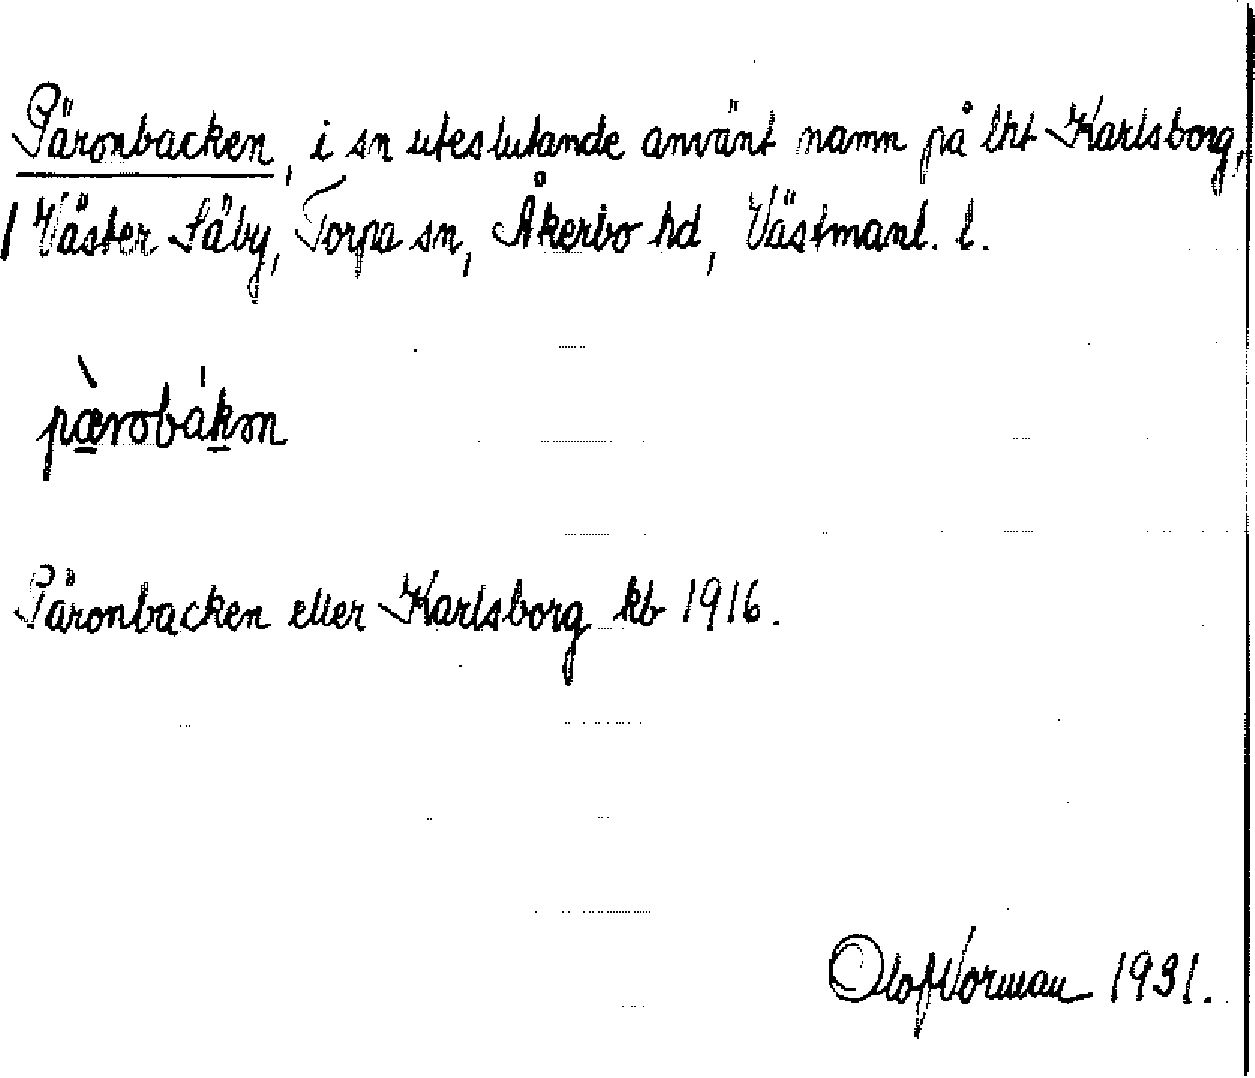 Päronbacken, i sn uteslutande använt namn på lht Karlsborg,
/ Väster Säby, Torpa sn, Åkerbo hd, Västmanl. l.
pæ̀robákən
Päronbacken eller Karlsborg kb 1916.
Olof Norman 1931.